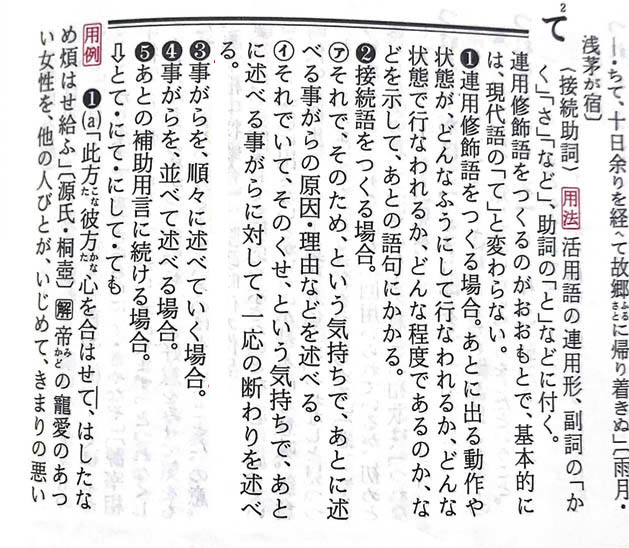 ―・ちて、十日余りを経て故郷に帰り着きぬ」〔雨月・
浅茅が宿〕
2て 〈接続助詞〉 用法 活用語の連用形、副詞の「か
く」「さ」など、助詞の「と」などに付く。
連用修飾語をつくるのがおおもとで、基本的に
は、現代語の「て」と変わらない。
❶連用修飾語をつくる場合。あとに出る動作や
状態が、どんなふうにして行なわれるか、どんな
状態で行なわれるか、どんな程度であるのか、な
どを示して、あとの語句にかかる。
❷接続語をつくる場合。
㋐それで、そのため、という気持ちで、あとに述
べる事がらの原因・理由などを述べる。
㋑それでいて、そのくせ、という気持ちで、あと
に述べる事がらに対して、一応の断わりを述べ
る。
❸事がらを、順々に述べていく場合。
❹事がらを、並べて述べる場合。
❺あとの補助用言に続ける場合。
⇩とて・にて・にして・ても
用例 ❶(a)「此方彼方心を合はせて、はしたな
め煩はせ給ふ」〔源氏・桐壺〕 解 帝の寵愛のあつ
い女性を、他の人びとが、いじめて、きまりの悪い